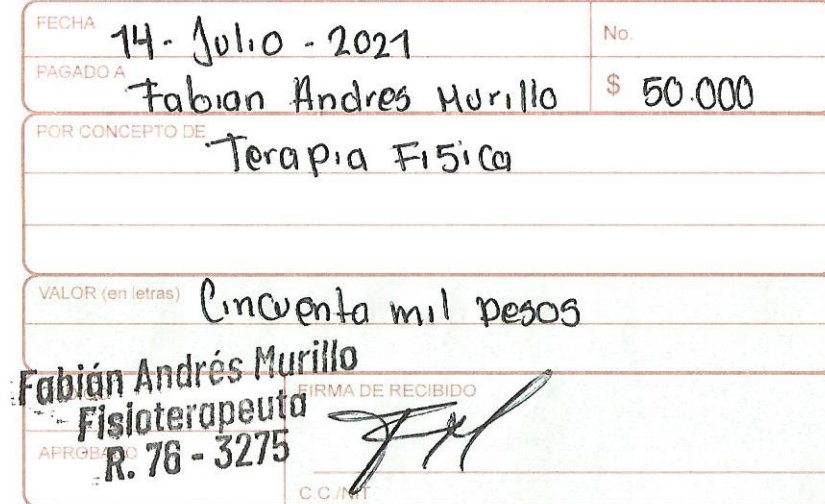 FECHA 14 - Julio - 2021 No.
PAGADO A Fabian Andres Murillo $ 50.000
POR CONCEPTO DE Terapia Fisica
VALOR (en letras) Cincuenta mil pesos
Fabián Andrés Murillo
Fisioterapeuta
R. 76 - 3275
FIRMA DE RECIBIDO
APROBADO
C.C./NIT